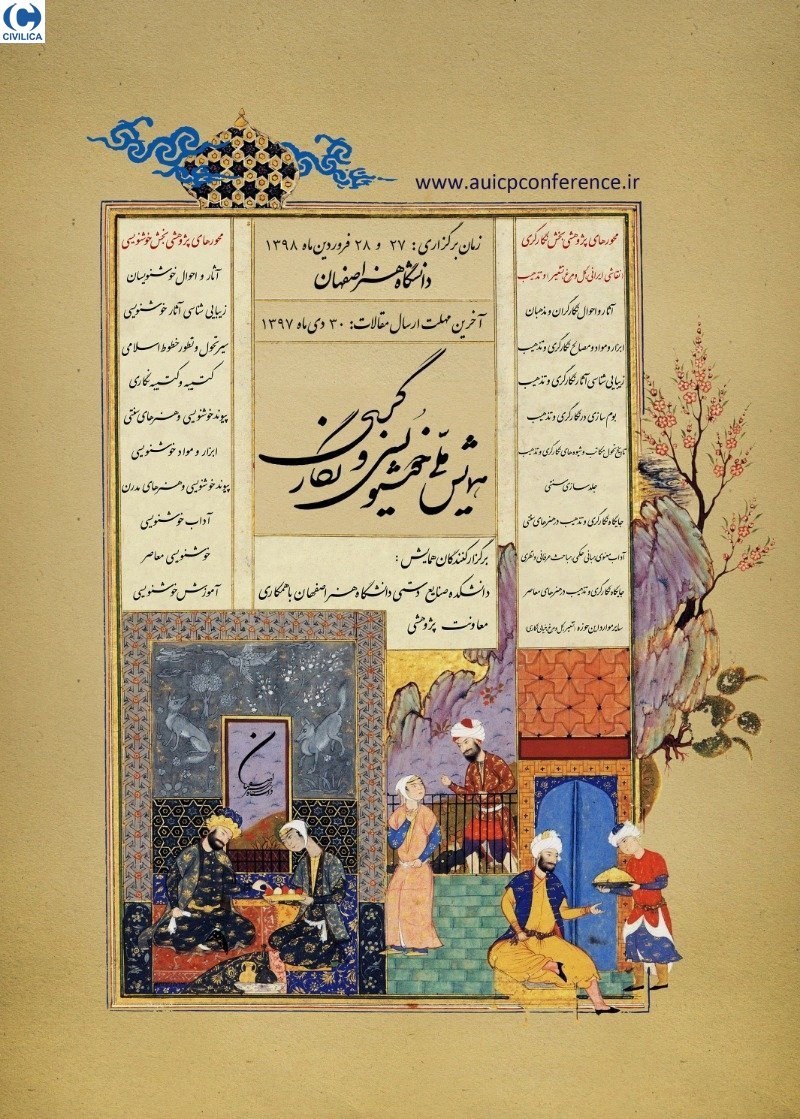 CIVILICA
www.auicpconference.ir
زمان برگزاری: ۲۷ و ۲۸ فروردین ماه ۱۳۹۸
دانشگاه هنر اصفهان
آخرین مهلت ارسال مقالات: ۳۰ دی ماه ۱۳۹۷
همایش ملّی خوشنویسی و نگارگری
برگزارکنندگان همایش:
دانشکده صنایع دستی دانشگاه هنر اصفهان با همکاری
معاونت پژوهشی
محورهای پژوهشی بخش نگارگری
نقاشی ایرانی، گل و مرغ، تشعیر و تذهیب
آثار و احوال نگارگران و مذهبان
ابزار و مواد و مصالح نگارگری و تذهیب
زیبایی شناسی آثار نگارگری و تذهیب
بوم سازی در نگارگری و تذهیب
تاریخ تحول مکاتب و شیوه های نگارگری و تذهیب
جلدسازی سنتی
جایگاه نگارگری و تذهیب در هنرهای سنتی
آداب معنوی، مبانی حکمی، مباحث عرفانی و نظری
جایگاه نگارگری و تذهیب در هنرهای معاصر
سایر موارد این حوزه: تشعیر، گل و مرغ،
محورهای پژوهشی بخش خوشنویسی
آثار و احوال خوشنویسان
زیبایی شناسی آثار خوشنویسی
سیر تحول و تطور خطوط اسلامی
کتیبه و کتیبه نگاری
پیوند خوشنویسی و هنرهای سنتی
ابزار و مواد خوشنویسی
پیوند خوشنویسی و هنرهای مدرن
آداب خوشنویسی
خوشنویسی معاصر
آموزش خوشنویسی
دانشگاه هنر اصفهان